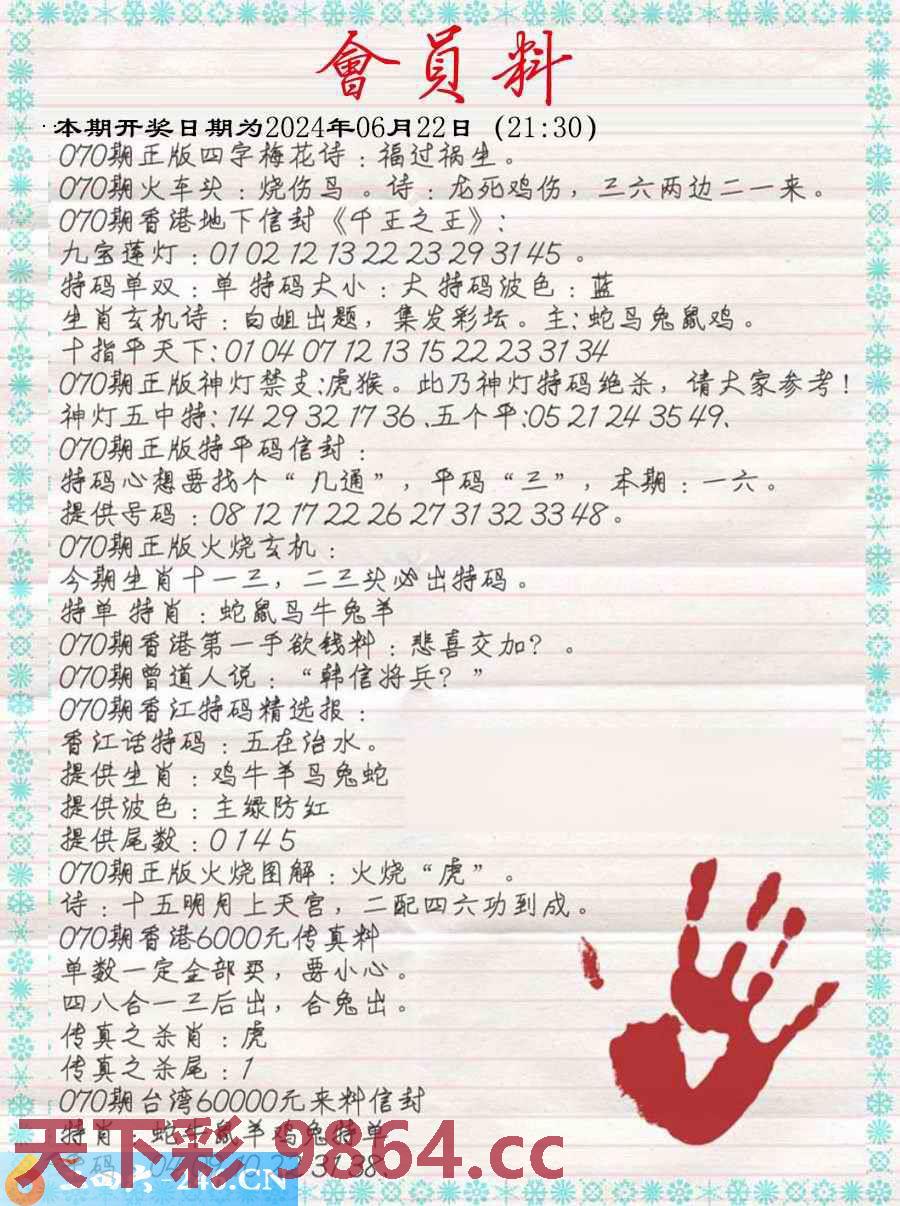 會員料
本期开奖日期为2024年06月22日（21:30）
070期正版四字梅花诗：福过祸生。
070期火车头：烧伤鸟 。诗：龙死鸡伤，三六两边二一来。
070期香港地下信封《千王之王》：
九宝莲灯：01 02 12 13 22 23 29 31 45 。
特码单双：单 特码大小：大 特码波色：蓝
生肖玄机诗：白姐出题，集发彩坛。主：蛇马兔鼠鸡。
十指平天下：01 04 07 12 13 15 22 23 31 34
070期正版神灯禁支：虎猴。此乃神灯特码绝杀，请大家参考！
神灯五中特：14 29 32 17 36 、五个平：05 21 24 35 49、
070期正版特平码信封：
特码心想要找个“ 几通”，平码“三”，本期：一六。
提供号码：08 12 17 22 26 27 31 32 33 48 。
070期正版火烧玄机：
今期生肖十一三，二三头必出特码。
特单 特肖：蛇鼠马牛兔羊
070期香港第一手欲钱料：悲喜交加？ 。
070期曾道人说：“韩信将兵？”
070期香江特码精选报：
香江话特码：五在治水。
提供生肖：鸡牛羊马兔蛇
提供波色：主绿防红
提供尾数：0 1 4 5
070期正版火烧图解：火烧“虎”。
诗：十五明月上天宫，二配四六功到成。
070期香港6000元传真料
单数一定全部买，要小心。
四八合一三后出，合兔出。
传真之杀肖：虎
传真之杀尾：1
070期台湾60000元来料信封
特肖：蛇牛鼠羊鸡兔特单
天下彩 9864.cc
31 38、
246.CN